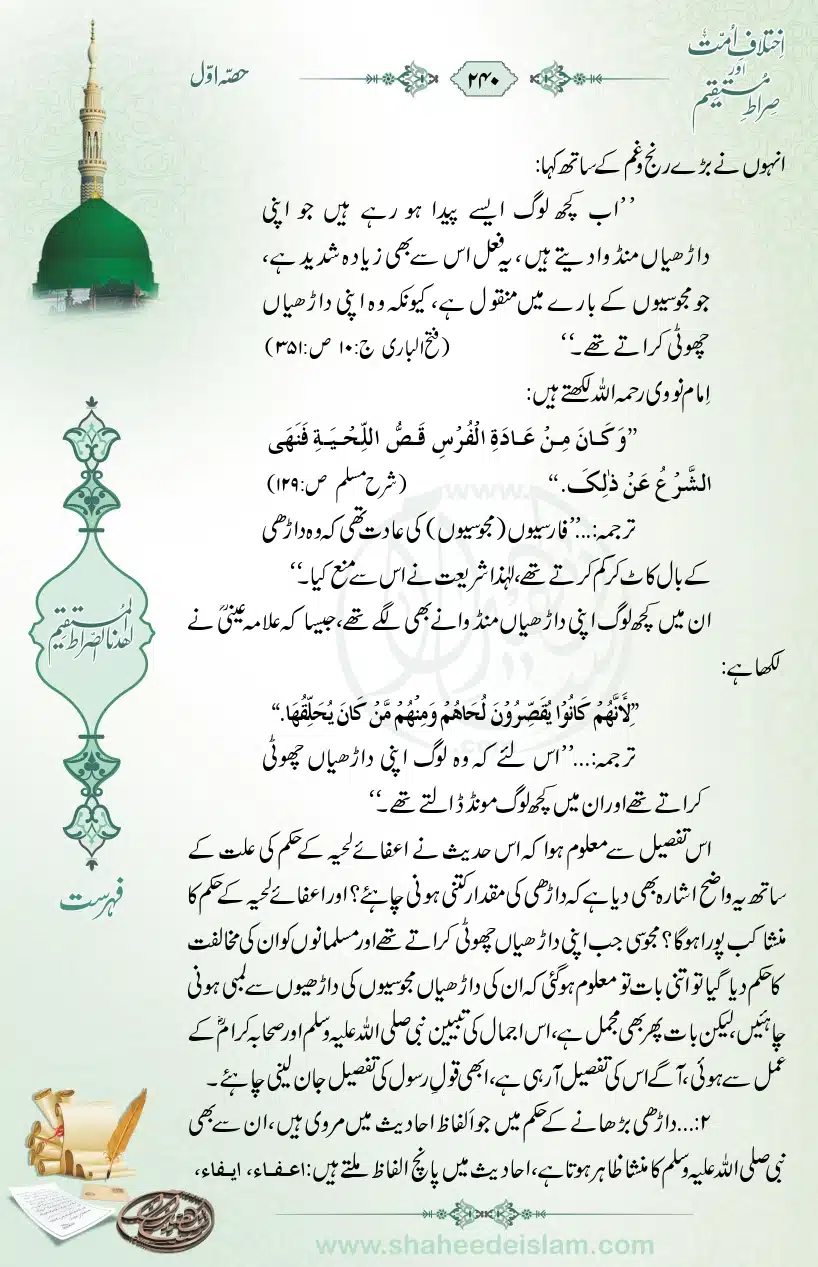 اِختلافِ اُمّت
اور
صِراطِ مُستقیم
۲۴۰
حصّہ اوّل
انہوں نے بڑے رنج وغم کے ساتھ کہا:
’’اب کچھ لوگ ایسے پیدا ہو رہے ہیں جو اپنی
داڑھیاں منڈوادیتے ہیں، یہ فعل اس سے بھی زیادہ شدید ہے،
جو مجوسیوں کے بارے میں منقول ہے، کیونکہ وہ اپنی داڑھیاں
چھوٹی کراتے تھے۔‘‘ (فتح الباری ج:۱۰ ص:۳۵۱)
اِمام نووی رحمہ اللہ لکھتے ہیں:
”وَكَانَ مِنْ عَادَةِ الْفُرْسِ قَصُّ اللِّحْيَةِ فَنَهَى
الشَّرْعُ عَنْ ذٰلِكَ.“ (شرح مسلم ص:۱۲۹)
ترجمہ:...’’فارسیوں (مجوسیوں) کی عادت تھی کہ وہ داڑھی
کے بال کاٹ کر کم کرتے تھے، لہٰذا شریعت نے اس سے منع کیا۔‘‘
ان میں کچھ لوگ اپنی داڑھیاں منڈوانے بھی لگے تھے، جیسا کہ علامہ عینیؒ نے
لکھا ہے:
”لِأَنَّهُمْ كَانُوْا يُقَصِّرُوْنَ لُحَاهُمْ وَمِنْهُمْ مَّنْ كَانَ يُحَلِّقُهَا.“
ترجمہ:...’’اس لئے کہ وہ لوگ اپنی داڑھیاں چھوٹی
کراتے تھے اور ان میں کچھ لوگ مونڈ ڈالتے تھے۔‘‘
اس تفصیل سے معلوم ہوا کہ اس حدیث نے اعفائے لحیہ کے حکم کی علت کے
ساتھ یہ واضح اشارہ بھی دیا ہے کہ داڑھی کی مقدار کتنی ہونی چاہئے؟ اور اعفائے لحیہ کے حکم کا
منشا کب پورا ہوگا؟ مجوسی جب اپنی داڑھیاں چھوٹی کراتے تھے اور مسلمانوں کو ان کی مخالفت
کا حکم دیا گیا تو اتنی بات تو معلوم ہوگئی کہ ان کی داڑھیاں مجوسیوں کی داڑھیوں سے لمبی ہونی
چاہئیں، لیکن بات پھر بھی مجمل ہے، اس اجمال کی تبیین نبی صلی اللہ علیہ وسلم اور صحابہ کرامؓ کے
عمل سے ہوئی، آگے اس کی تفصیل آرہی ہے، ابھی قولِ رسول کی تفصیل جان لینی چاہئے۔
۲:...داڑھی بڑھانے کے حکم میں جو اَلفاظ احادیث میں مروی ہیں، ان سے بھی
نبی صلی اللہ علیہ وسلم کا منشا ظاہر ہوتا ہے، احادیث میں پانچ الفاظ ملتے ہیں: اعفاء، ایفاء،
اھدنا الصّراط المُستقیم
فہرست
www.shaheedeislam.com